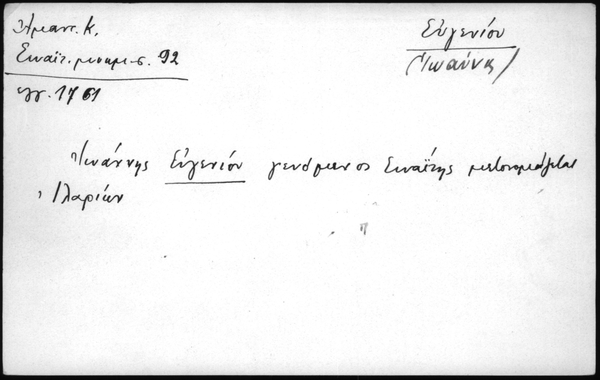 Ἄμαντ. Κ.
Σιναϊτ. μνημ. σ. 92
ἔγγ. 1761
Εὐγενίου
(Ἰωάννης)
Ἰωάννης Εὐγενίου γενόμενος Σιναΐτης μετονομάζεται
Ἱλαρίων